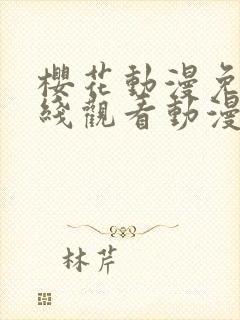 櫻花動漫免
綫觀看動漫
林芹